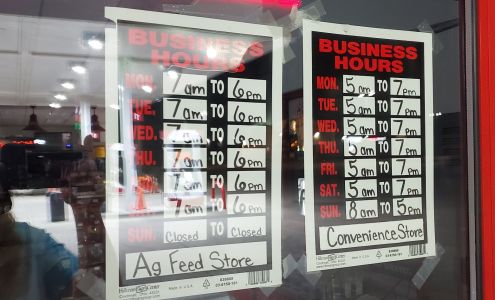 BUSINESS
HOURS
MON. 7am TO 6pm
TUE. 7am TO 6pm
WED. 7am TO 6pm
THU. 7am TO 6pm
FRI. 7am TO 6pm
SAT. 7am TO 6pm
SUN. Closed TO Closed
Ag Feed Store
BUSINESS
HOURS
MON. 5am TO 7pm
TUE. 5am TO 7pm
WED. 5am TO 7pm
THU. 5am TO 7pm
FRI. 5am TO 7pm
SAT. 5am TO 7pm
SUN. 8am TO 5pm
Convenience Store